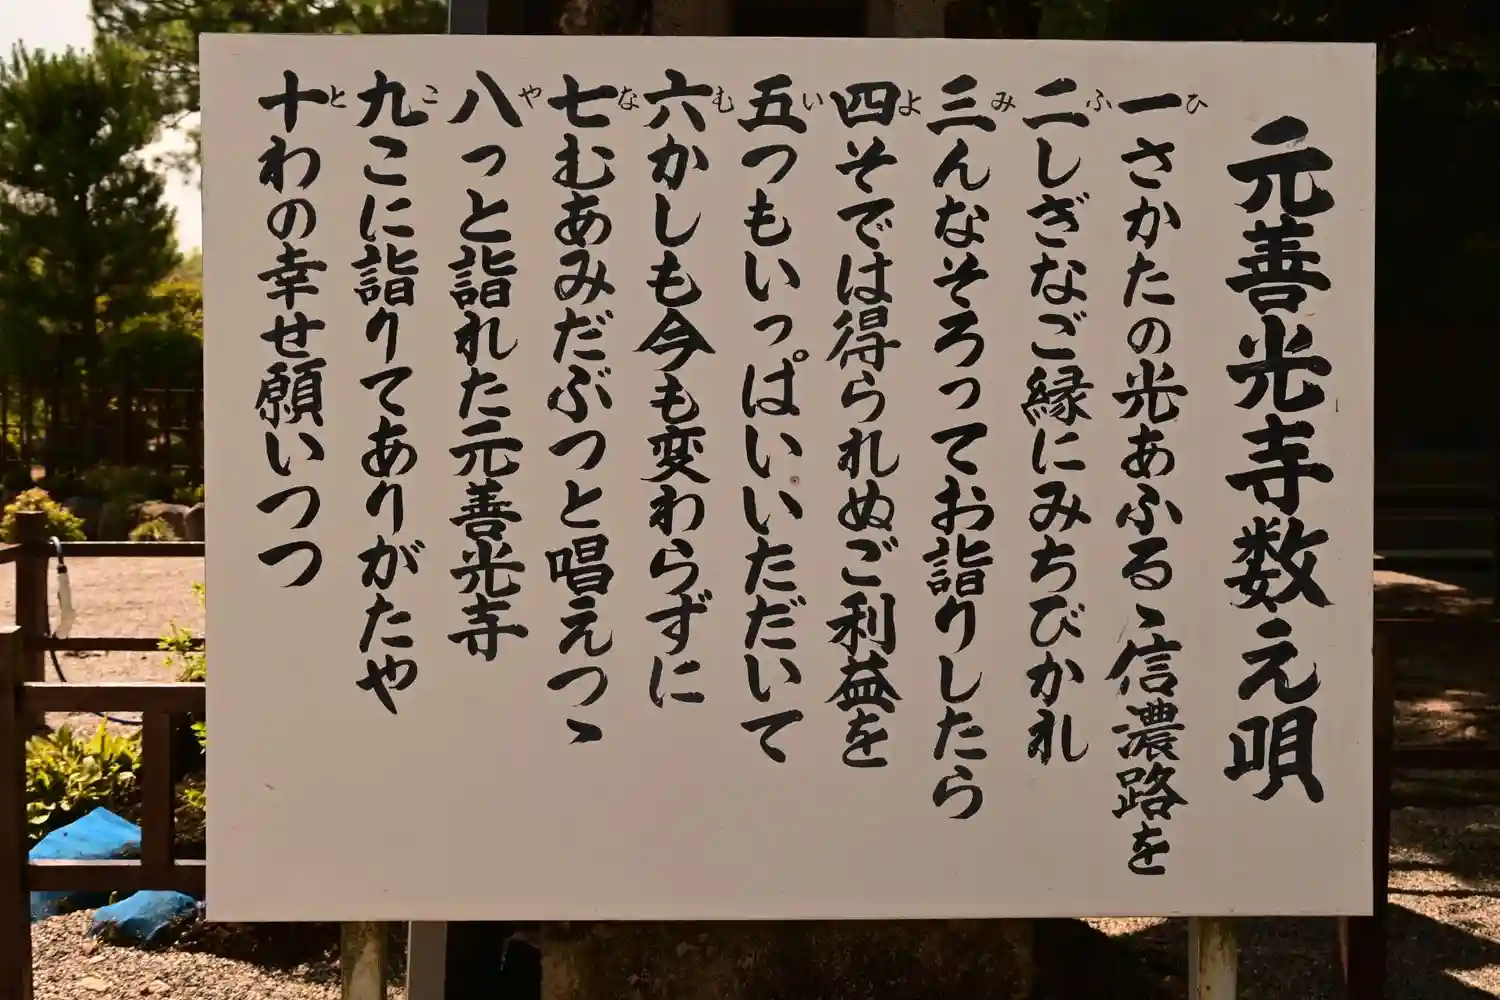 元善光寺数え唄
一さかたの光あふるゝ信濃路を
二しぎなご縁にみちびかれ
三んなそろってお詣りしたら
四そでは得られぬご利益を
五つもいっぱいいただいて
六かしも今も変わらずに
七むあみだぶつと唱えつゝ
八っと詣れた元善光寺
九こに詣りてありがたや
十わの幸せ願いつつ
ひ
ふ
み
よ
い
む
な
や
こ
と